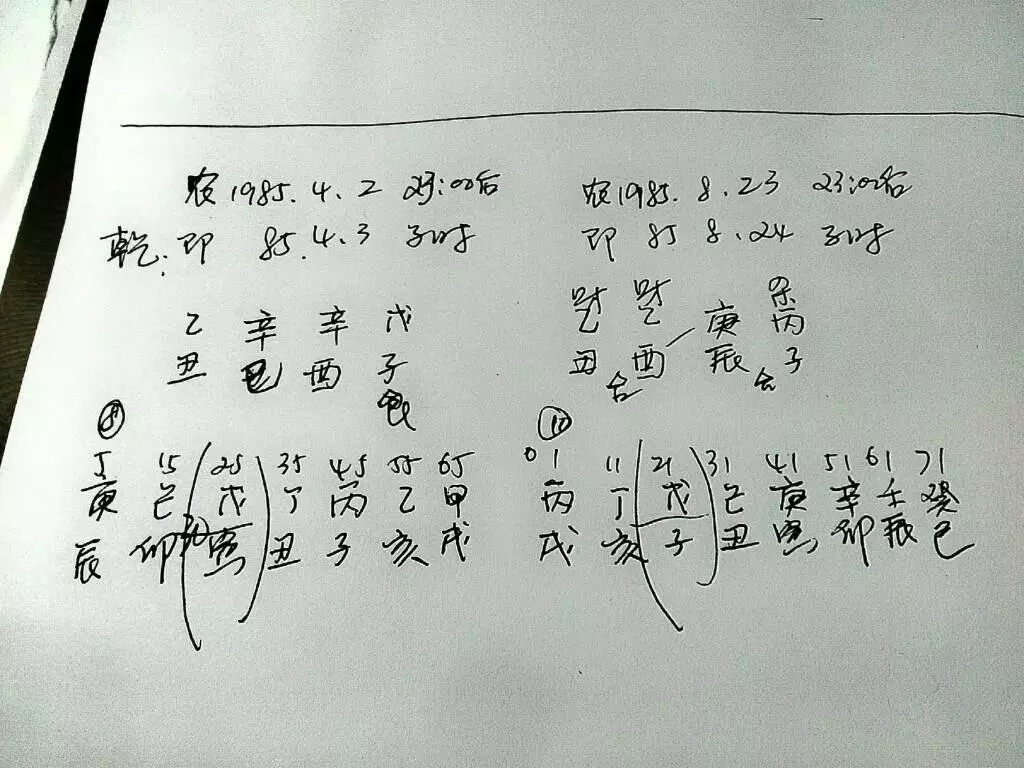 农1985.4.2 23:00后
乾:即 85.4.3 子时
乙 辛 辛 戊
丑 巳 酉 子
5 15 25 35 45 55 65
庚 己 戊 丁 丙 乙 甲
辰 卯 寅 丑 子 亥 戌
农1985.8.23 23:00后
即 85 8.24 子时
财 财 杀
乙 乙 庚 丙
丑 酉 辰 子
合 合
⑩
0 1 11 21 31 41 51 61 71
丙 丁 戊 己 庚 辛 壬 癸
戌 亥 子 丑 寅 卯 辰 巳